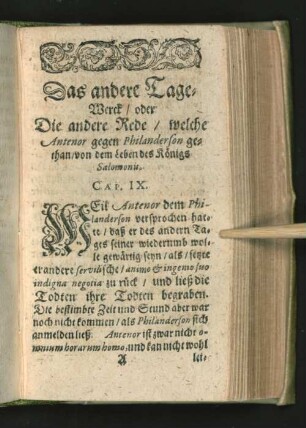 Das andere Tage-
Werck / oder
Die andere Rede / welche
Antenor gegen Philanderson ge-
than / von dem Leben des Königs
Salomonis.
CAP. IX.
WEil Antenor dem Phi-
landerson versprochen hat-
te / daß er des andern Ta-
ges seiner wiederumb wol-
le gewärtig seyn / als / setzte
er andere servilische / animo & ingenio suo
indigna negotia zu rück / und ließ die
Todten ihre Todten begraben.
Die bestimbte Zeit und Stund aber war
noch nicht kommen / als Philanderson sich
anmelden ließ. Antenor ist zwar nicht o-
mnium horarum homo, und kan nicht wohl
A
lei-